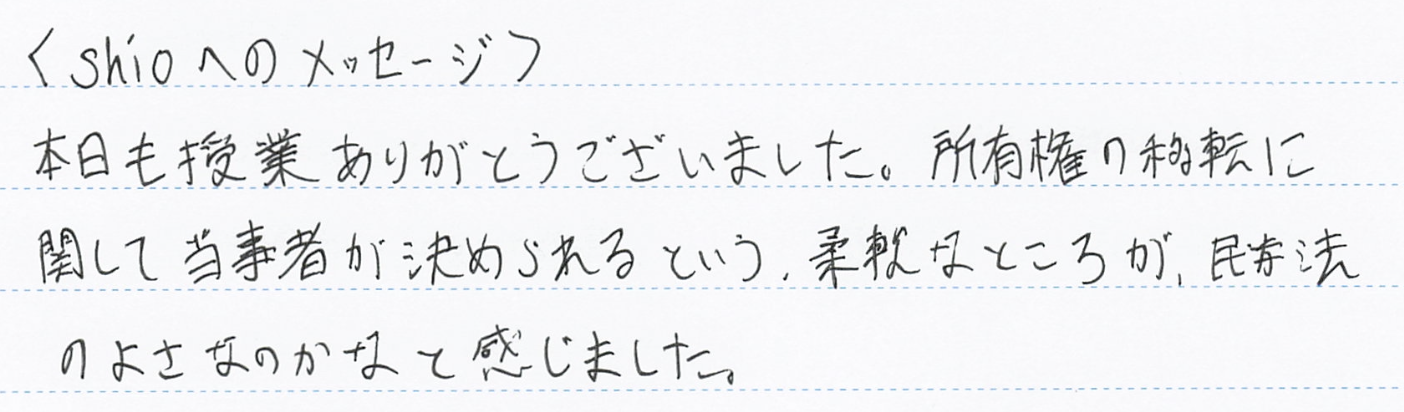 〈shioへのメッセージ〉
本日も授業ありがとうございました。所有権の移転に
関して当事者が決められるという、柔軟なところが、民事法
のよさなのかなと感じました。